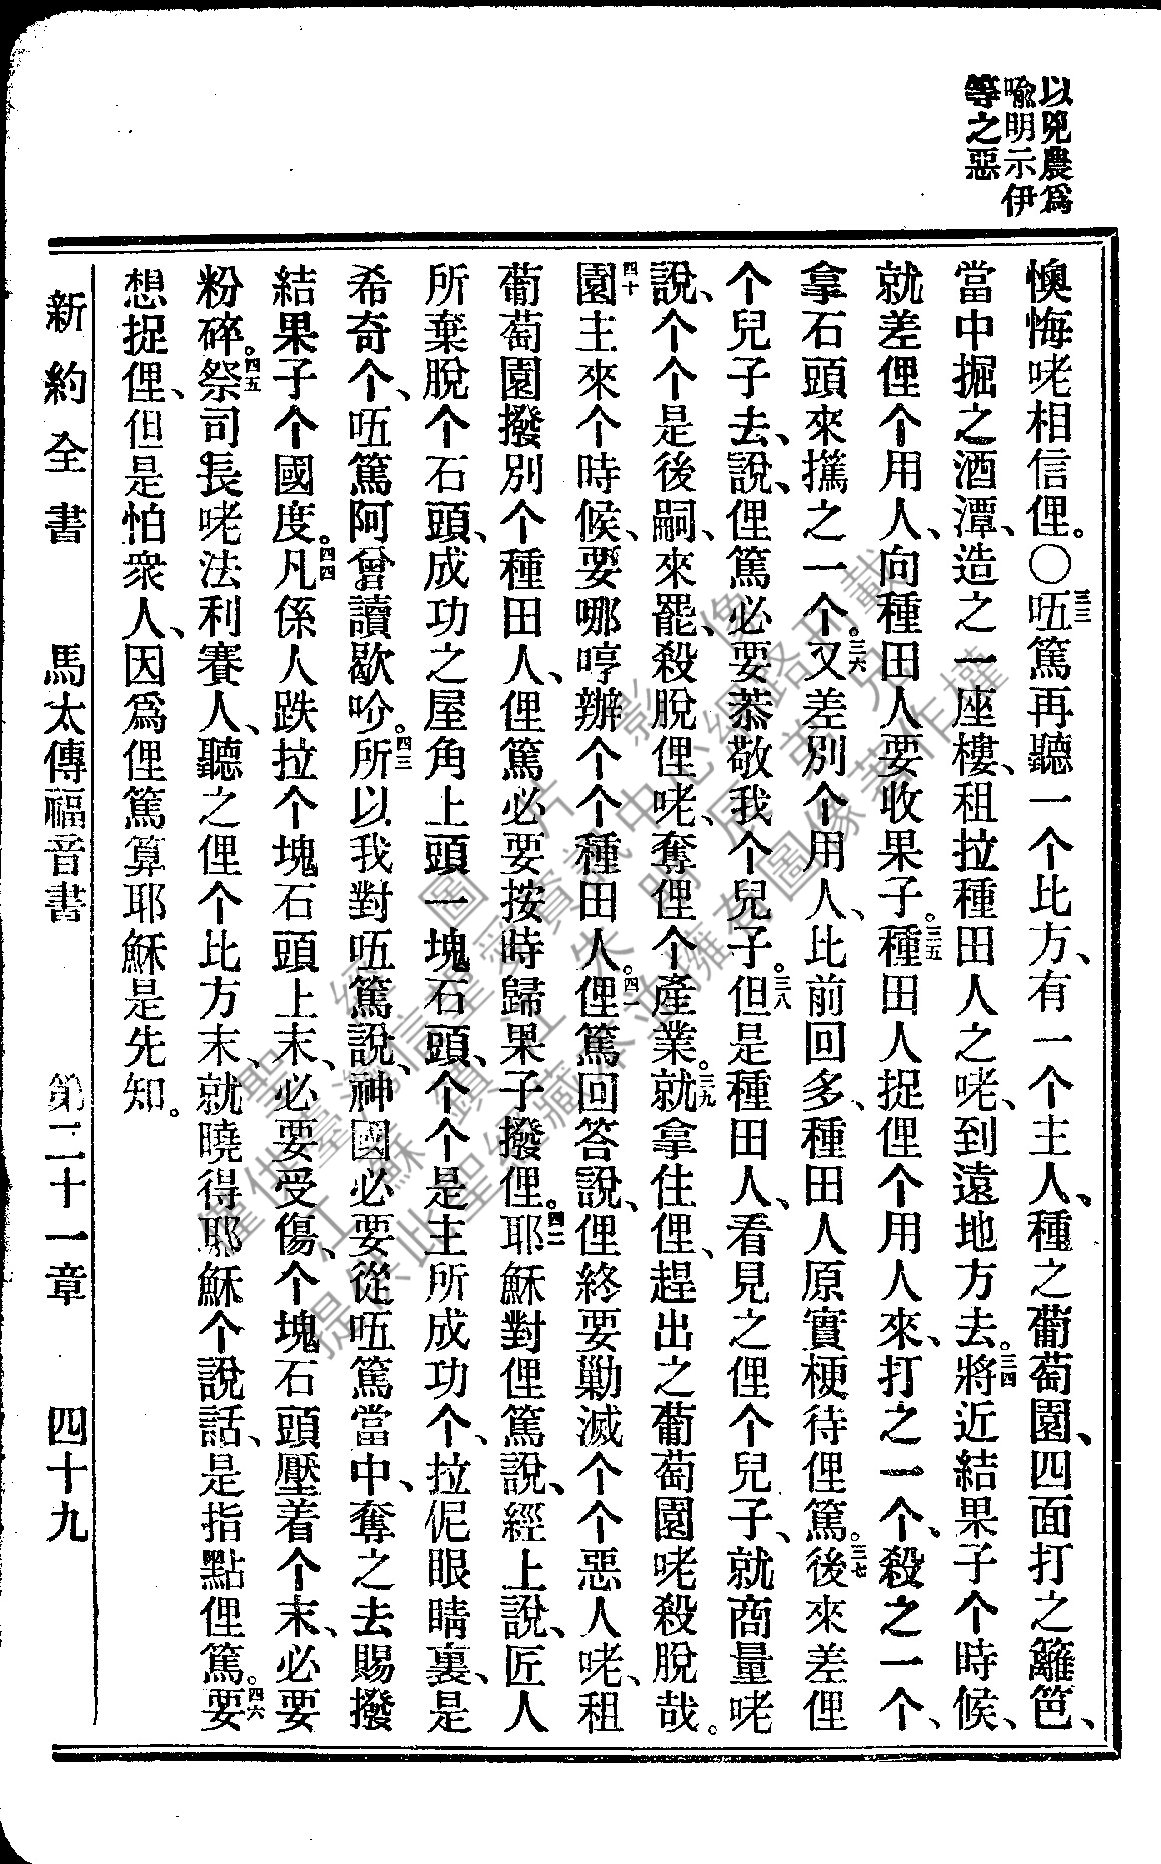 以兇農爲
喩明示伊
等之惡
懊悔咾相信俚。〇三三㕶篤再聽一个比方、有一个主人、種之葡萄園、四面打之籬笆、
當中掘之酒潭、造之一座樓、租拉種田人之咾、到遠地方去。三四將近結果子个時候、
就差俚个用人、向種田人要收果子。三五種田人捉俚个用人來、打之一个、殺之一个、
拿石頭來㩧之一个。三六又差別个用人、比前回多、種田人原實梗待俚篤。三七後來差俚
个兒子去、說、俚篤必要恭敬我个兒子。三八但是種田人、看見之俚个兒子、就商量咾
說、个个是後嗣、來罷、殺脫俚咾、奪俚个產業。三九就拿住俚、趕出之葡萄園咾殺脫哉。
四十園主來个時候、要哪哼辦个个種田人。四一俚篤回答說、俚終要勦滅个个惡人咾、租
葡萄園撥別个種田人、俚篤必要按時歸果子撥俚。四二耶穌對俚篤說、經上說、匠人
所棄脫个石頭、成功之屋角上頭一塊石頭、个个是主所成功个、拉伲眼睛裏、是
希奇个、㕶篤阿曾讀歇吤。四三所以我對㕶篤說、神國必要從㕶篤當中、奪之去賜撥
結果子个國度。四四凡係人跌拉个塊石頭上末、必要受傷、个塊石頭壓着个末、必要
粉碎。四五祭司長咾法利賽人、聽之俚个比方末、就曉得耶穌个說話、是指點俚篤。四六要
想捉俚、但是怕衆人、因爲俚篤算耶穌是先知。
新約全書 馬太傳福音書 第二十一章 四十九